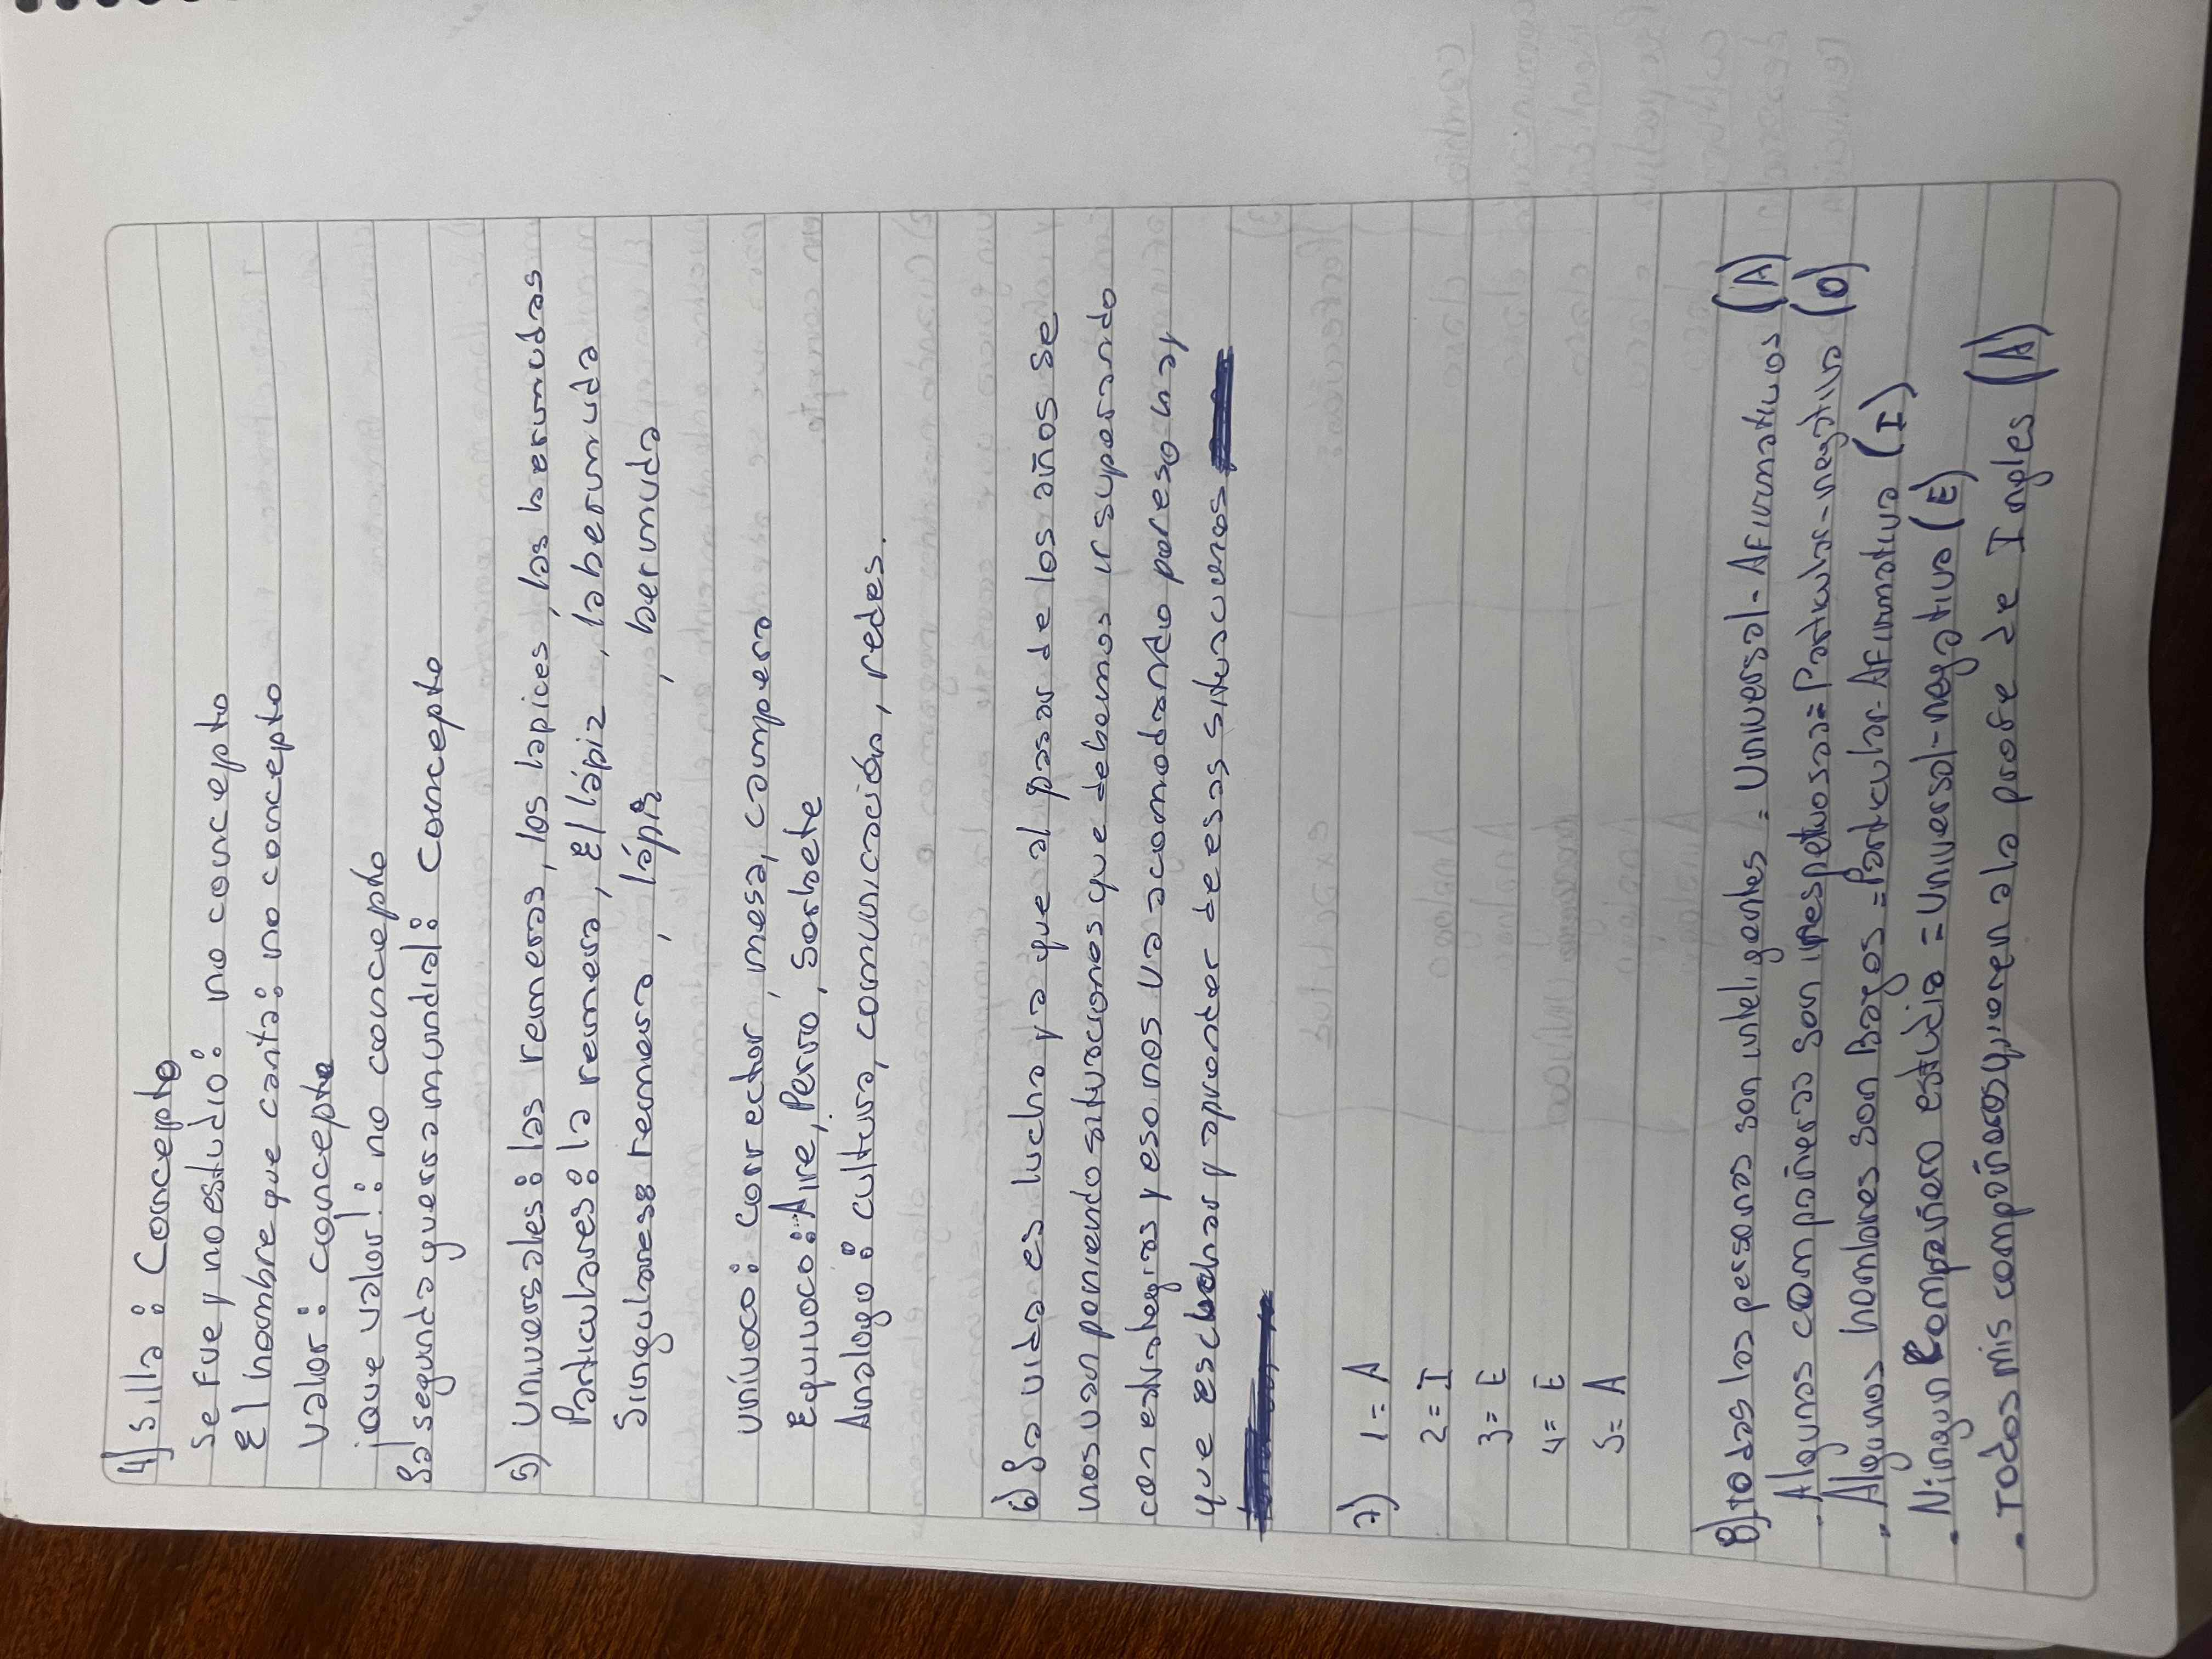 4) silla : Concepto
se Fue y no estudio : no concepto
El hombre que canta : no concepto
valor : concepto
¡que valor! : no concepto
La segunda guerra mundial : Concepto
5) Universales : las remeras, los lapices, las bermudas
Particulares : la remera, El lápiz, la bermuda
Singulares : remera, lápiz, bermuda
univoco : corrector, mesa, campera
Equivoco : Aire, Perro, Sorbete
Analogo : cultura, comunicación, redes.
6) La vida es lucha ya que al pasar de los años se
nos van poniendo situaciones que debemos ir superando
con estategias y eso nos va acomodando por eso hay
que escuchar y aprender de esas situaciones
7) 1 = A
2 = I
3 = E
4 = E
5 = A
B) todas las personas son inteligentes = Universal - AFirmativos (A)
- Algunas compañeras son irrespetuosas = Particular - negativa (O)
- Algunos hombres son Bagos = Particular - AFirmativa (I)
- Ningun Compañero estudia = Universal - negativa (E)
- Todos mis compañeros quieren a la profe de Ingles (A)